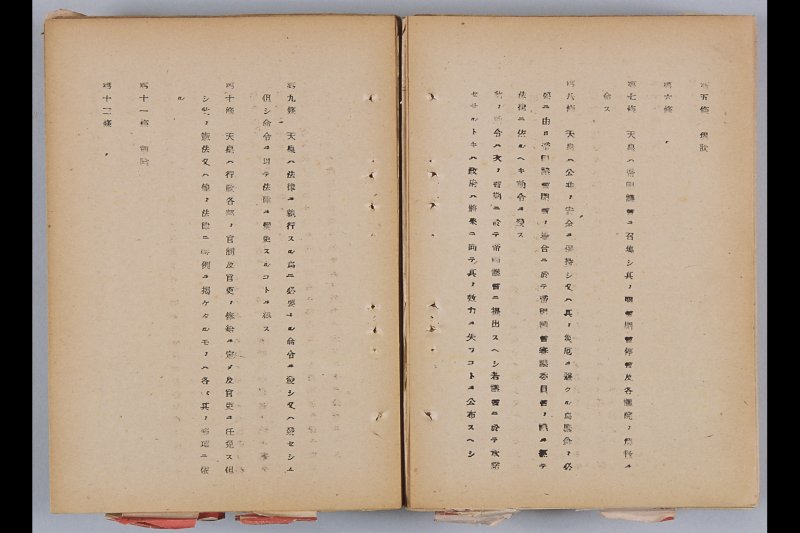 第五條 現状
第六條
第七條 天皇ハ帝国議會ヲ召集シ其ノ開會閉會停會及各議院ノ解散ヲ
命ス
第八條 天皇ハ公共ノ安全ヲ保持シ又ハ其ノ災厄ヲ避クル為緊急ノ必
要ニ由リ帝国議會閉會ノ場合ニ於テ帝国議會常議委員會ノ議ヲ経テ
法律ニ依ルヘキ勅令ヲ発ス
此ノ勅令ハ次ノ會期ニ於テ帝国議會ニ提出スヘシ若議會ニ於テ承諾
セサルトキハ政府ハ将来ニ向テ其ノ効力ヲ失フコトヲ公布スヘシ
第九條 天皇ハ法律ヲ執行スル為ニ必要ナル命令ヲ発シ又ハ発セシム
但シ命令ヲ以テ法律ヲ変更スルコトヲ得ス
第十條 天皇ハ行政各部ノ官制及官吏ノ俸給ヲ定メ及官吏ヲ任免ス但
シ此ノ憲法又ハ他ノ法律ニ特例ヲ掲ケタルモノハ各〻其ノ條項ニ依
ル
第十一條 削除
第十二條